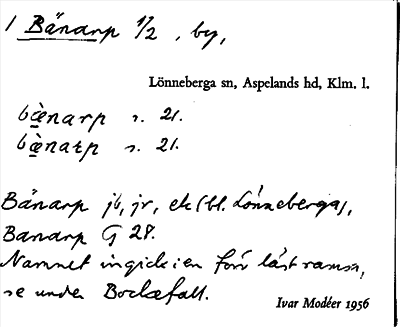 1 Bänarp 1/2 , by,
Lönneberga sn, Aspelands hd, Klm. l.
bæ̀narp s. 21.
bæ̀naꝛp s. 21.
Bänarp jb, jr, ek (bl. Lönneberga),
Banarp G 28.
Namnet ingick i en förr läst ramsa,
se under Bockefall.
Ivar Modéer 1956